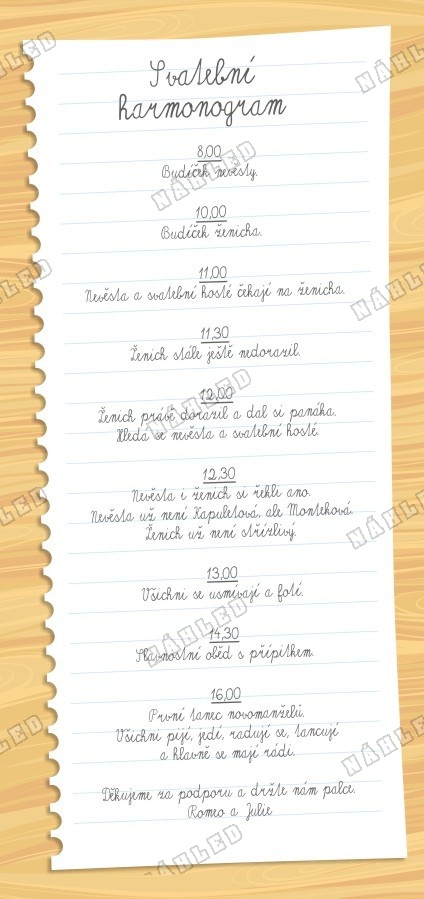 Svatební
harmonogram
8,00
Budíček nevěsty.
10,00
Budíček ženicha.
11,00
Nevěsta a svatební hosté čekají na ženicha.
11,30
Ženich stále ještě nedorazil.
12,00
Ženich právě dorazil a dal si panáka.
Hledá se nevěsta a svatební hosté.
12,30
Nevěsta i ženich si řekli ano.
Nevěsta už není Kapuletová, ale Monteková.
Ženich už není střízlivý.
13,00
Všichni se usmívají a fotí.
14,30
Slavnostní oběd s přípitkem.
16,00
První tanec novomanželů.
Všichni pijí, jedí, radují se, tancují
a hlavně se mají rádi.
Děkujeme za podporu a držte nám palce.
Romeo a Julie
NÁHLED
NÁHLED
NÁHLED
NÁHLED